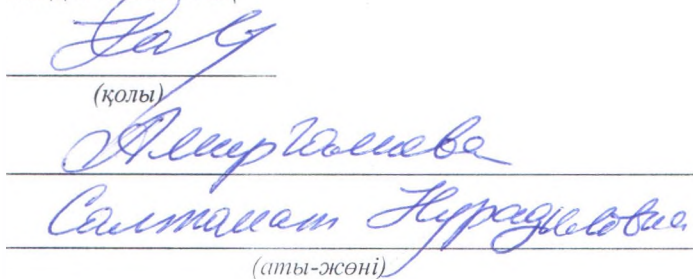 (қолы)
Амиргалиева
Салтанат Нурадиловна
(аты-жөні)